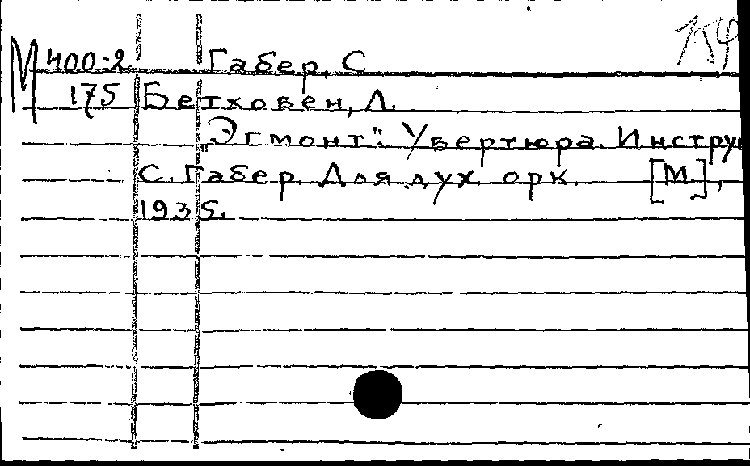 КФ
М 400-2 Габер, С
175 Бетховен, Л.
"Эгмонт". Увертюра. Инстру
С. Габер. Для дух. орк. [М.],
1935.